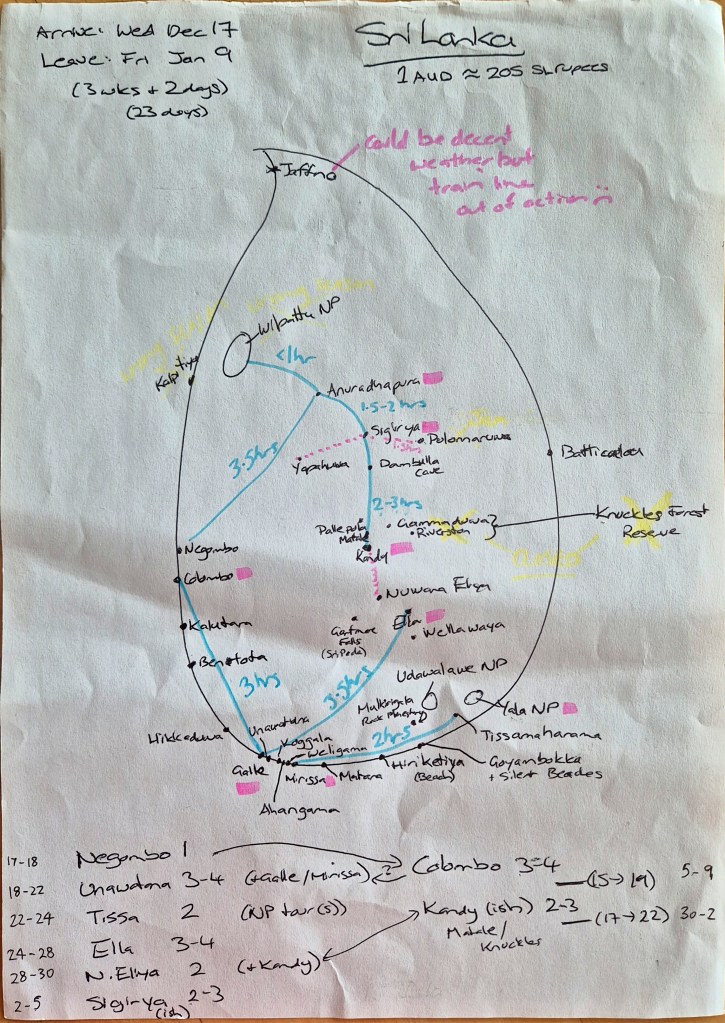 Arrive: Wed Dec 17
Leave: Fri Jan 9
(3 wks + 2 days)
(23 days)
Sri Lanka
1 AUD ≈ 205 SL rupees
Jaffna
could be decent
weather but
train line
out of action
Wilpattu NP
Kalpitiya
<1hr
Anuradhapura
1.5-2 hrs
Sigirya
Polonaruwa
1.5hrs
3.5hrs
Yapahuwa
Dambulla
Cave
Batticaloa
2-3hrs
Matale
Gammaduwa
Riverston
Knuckles Forest
Reserve
Kandy
Negombo
Colombo
Nuwara Eliya
Kalutara
Ella
Wellawaya
Falls
(Sri Pada)
Bentota
3hrs
3.5hrs
Udawalawe NP
Mulkirigala
Rock Monastery
Yala NP
Tissamaharama
Hikkaduwa
Unawatuna
Koggala
Weligama
2hrs
Galle
Mirissa
Matara
Hiriketiya
(Beach)
Goyambokka
+ Silent Beaches
Ahangama
17-18 Negombo 1
Colombo 3-4 (15→19) 5-9
18-22 Unawatuna 3-4 (+Galle/Mirissa) ?
22-24 Tissa 2 (NP tour(s))
Kandy (ish) 2-3 (17→22) 30-2
Matale/
Knuckles
24-28 Ella 3-4
28-30 N. Eliya 2 (+Kandy)
2-5 Sigirya 2-3
(ish)